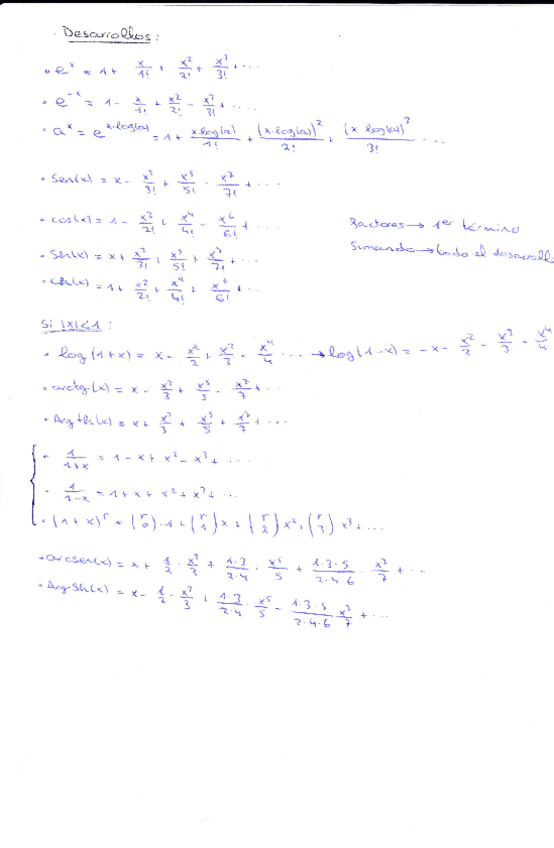 Desarrollos:
• e^x = 1 + x/1! + x²/2! + x³/3! + ...
• e^-x = 1 - x/1! + x²/2! - x³/3! + ....
• a^x = e^x·log(a) = 1 + x·log(a)/1! + (x·log(a))²/2! + (x·log(a))³/3! ...
• Sen(x) = x - x³/3! + x⁵/5! - x⁷/7! + ...
• cos(x) = 1 - x²/2! + x⁴/4! - x⁶/6! + ...
Factores → 1er término
Sumando → todo el desarrollo
• Sh(x) = x + x³/3! + x⁵/5! + x⁷/7! + ...
• Ch(x) = 1 + x²/2! + x⁴/4! + x⁶/6! + ...
Si |x|<1:
• log(1+x) = x - x²/2 + x³/3 - x⁴/4 ... → log(1-x) = -x - x²/2 - x³/3 - x⁴/4
• arctg(x) = x - x³/3 + x⁵/5 - x⁷/7 + ...
• Argth(x) = x + x³/3 + x⁵/5 + x⁷/7 + ...
• 1/1+x = 1 - x + x² - x³ + ...
• 1/1-x = 1 + x + x² + x³ + ...
• (1+x)^r = (r 0)·1 + (r 1)x + (r 2)x² + (r 3)x³ + ...
• arcsen(x) = x + 1/2 · x³/3 + 1·3/2·4 · x⁵/5 + 1·3·5/2·4·6 · x⁷/7 + ...
• ArgSh(x) = x - 1/2 · x³/3 + 1·3/2·4 · x⁵/5 - 1·3·5/2·4·6 · x⁷/7 + ...